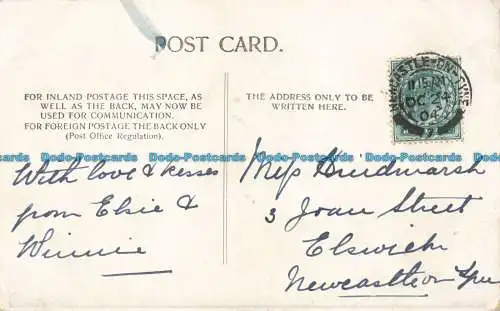 POST CARD.
FOR INLAND POSTAGE THIS SPACE, AS
WELL AS THE BACK, MAY NOW BE
USED FOR COMMUNICATION.
FOR FOREIGN POSTAGE THE BACK ONLY
(Post Office Regulation).
THE ADDRESS ONLY TO BE
WRITTEN HERE.
NEWCASTLE-ON-TYNE
OC 24
04
With love & kisses
from Elsie &
Winnie
Miss Hindmarsh
3 Joan Street
Elswick
Newcastle on Tyne
Postcards Delcampe-Postcards Delcampe-Postcards